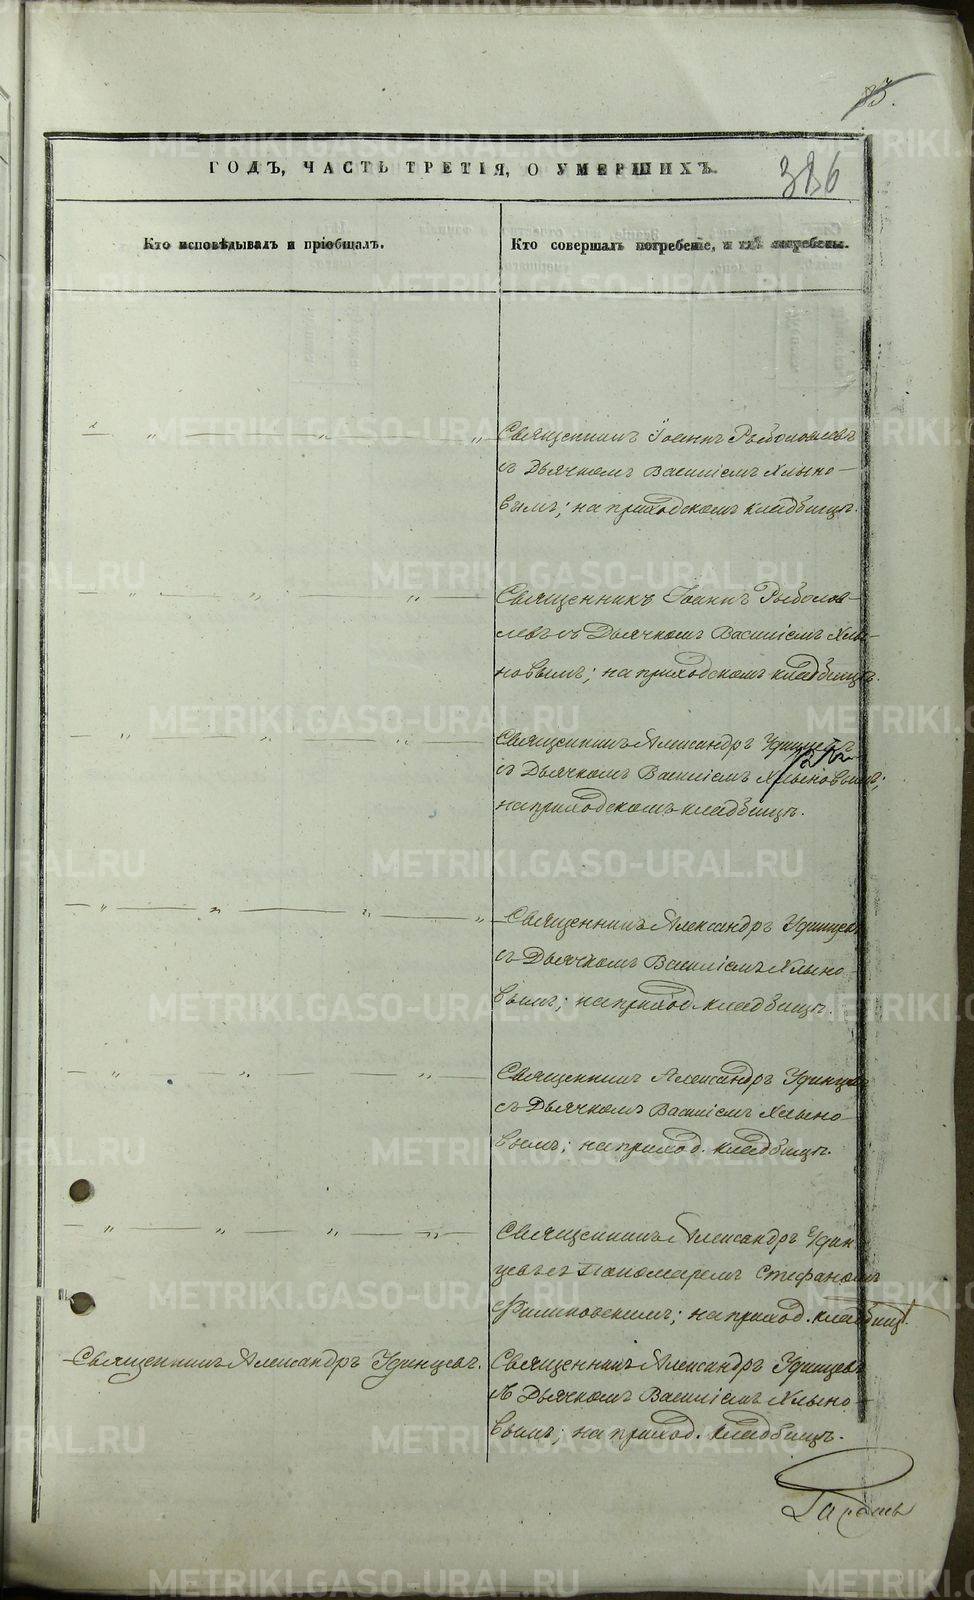 ГОДЪ, ЧАСТЬ ТРЕТІЯ, О УМЕРШИХЪ.
386
Кто исповѣдывалъ и пріобщалъ.
Кто совершалъ погребеніе, и гдѣ погребены.
Священникъ Іоаннъ Рыболовлевъ
съ Дьячкомъ Василіемъ Хлыно-
вымъ; на приходскомъ кладбищѣ.
Священникъ Іоаннъ Рыболов-
левъ съ Дьячкомъ Василіемъ Хлы-
новымъ; на приходскомъ кладбищѣ.
Священникъ Александръ Удинцевъ
съ Дьячкомъ Василіемъ Хлыновымъ;
на приходскомъ кладбищѣ.
Священникъ Александръ Удинцевъ
съ Дьячкомъ Василіемъ Хлыно-
вымъ; на приход. кладбищѣ.
Священникъ Александръ Удинцевъ
съ Дьячкомъ Василіемъ Хлыно-
вымъ; на приход. кладбищѣ.
Священникъ Александръ Удин-
цевъ съ Пономаремъ Стефаномъ
Филиповскимъ; на приход. кладбищ.
Священникъ Александръ Удинцевъ.
Священникъ Александръ Удинцевъ
съ Дьячкомъ Василіемъ Хлыно-
вымъ; на приход. кладбищѣ.
METRIKI.GASO-URAL.RU